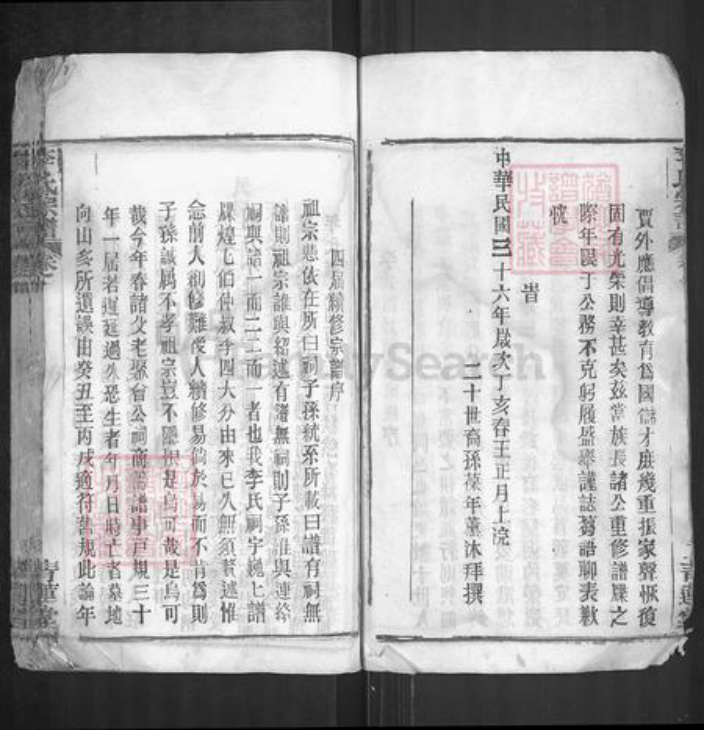 賈外應倡導教育為國儲才庶幾重振家聲恢復
固有光榮則幸甚矣茲當族長諸公重修譜牒之
際年限于公務不克躬履盛舉謹誌芻語聊表歉
忱
旹
中華民國三十六年歲次丁亥春王正月上浣
二十世裔孫葆年薰沐拜撰
四屆續修宗譜序
祖宗憑依在所曰祠子孫統系所載曰譜有祠無
譜則祖宗誰與紹述有譜無祠則子孫誰與連絡
祠與譜一而二二而一者也我李氏祠宇巍巍譜
牒煌煌伯仲叔季四大分由來已久無須贅述惟
念前人創修難後人續修易倘於易而不肯為則
子孫誠屬不孝祖宗豈不隱恨是烏可哉是烏可
哉今年春諸父老聚首公祠商議譜事戶規三十
年一屆若遲延過久恐生者年月日時亡者墓地
向山多所遺誤由癸丑至丙戌適符舊規此論年
李氏宗譜
青蓮堂
FamilySearch